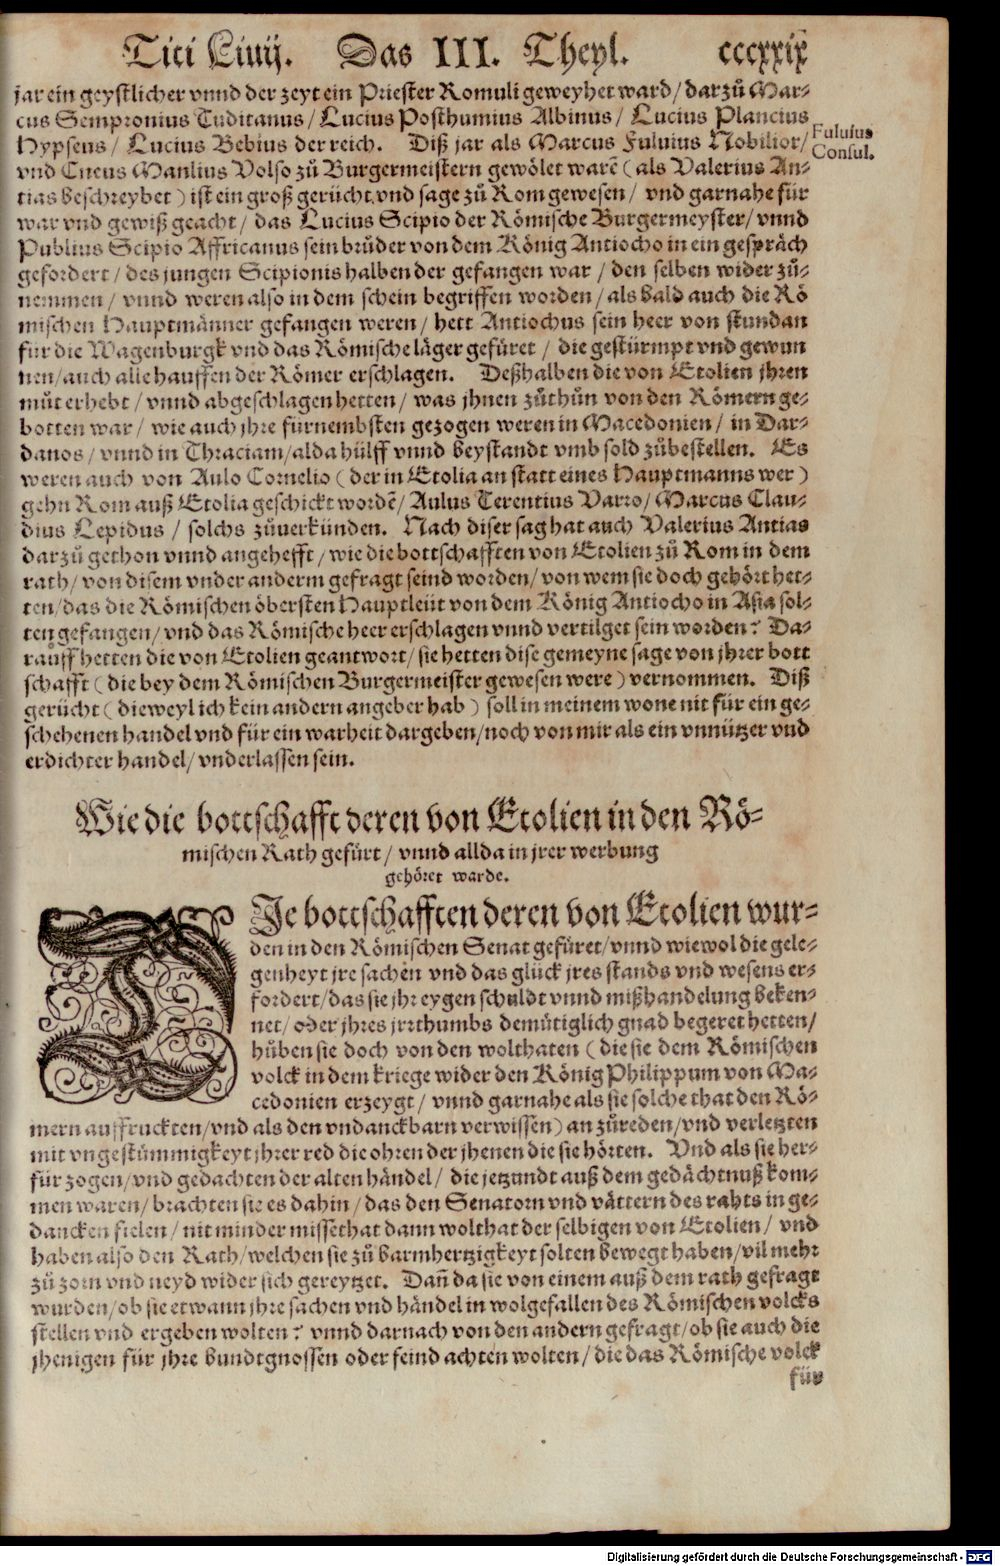 Titi Liuij. Das III. Theyl. cccxxix
jar ein geystlicher vnnd der zeyt ein Priester Romuli geweyhet ward / darzů Mar⸗
cus Sempronius Tuditanus / Lucius Posthumius Albinus / Lucius Plancius
Hypseus / Lucius Bebius der reich. Diß jar als Marcus Fuluius Nobilior /
Fuluius
Consul.
vnd Cneus Manlius Volso zů Burgermeistern gewölet warẽ ( als Valerius An⸗
tias beschreybet ) ist ein groß gerücht vnd sage zů Rom gewesen / vnd garnahe für
war vnd gewiß geacht / das Lucius Scipio der Römische Burgermeyster / vnnd
Publius Scipio Affricanus sein brůder von dem König Antiocho in ein gespräch
gefordert / des jungen Scipionis halben der gefangen war / den selben wider zů⸗
nemmen / vnnd weren also in dem schein begriffen worden / als bald auch die Rö
mischen Hauptmänner gefangen weren / hett Antiochus sein heer von stundan
für die Wagenburgk vnd das Römische läger gefüret / die gestürmpt vnd gewun
nen / auch alle hauffen der Römer erschlagen. Deßhalben die von Etolien jhren
můt erhebt / vnnd abgeschlagen hetten / was jhnen zůthůn von den Römern ge⸗
botten war / wie auch jhre fürnembsten gezogen weren in Macedonien / in Dar⸗
danos / vnnd in Thraciam / alda hülff vnnd beystandt vmb sold zůbestellen. Es
weren auch von Aulo Cornelio ( der in Etolia an statt eines Hauptmanns wer )
gehn Rom auß Etolia geschickt wordẽ / Aulus Terentius Varro / Marcus Clau⸗
dius Lepidus / solchs zůuerkünden. Nach diser sag hat auch Valerius Antias
darzů gethon vnnd angehefft / wie die bottschafften von Etolien zů Rom in dem
rath / von disem vnder anderm gefragt seind worden / von wem sie doch gehört het⸗
ten / das die Römischen öbersten Hauptleüt von dem König Antiocho in Asia sol⸗
ten gefangen / vnd das Römische heer erschlagen vnnd vertilget sein worden? Da⸗
rauff hetten die von Etolien geantwort / sie hetten dise gemeyne sage von jhrer bott
schafft ( die bey dem Römischen Burgermeister gewesen were ) vernommen. Diß
gerücht ( dieweyl ich kein andern angeber hab ) soll in meinem wone nit für ein ge⸗
schehenen handel vnd für ein warheit dargeben / noch von mir als ein vnnützer vnd
erdichter handel / vnderlassen sein.
Wie die bottschafft deren von Etolien in den Rö⸗
mischen Rath gefürt / vnnd allda in jrer werbung
gehöret warde.
DJe bottschafften deren von Etolien wur⸗
den in den Römischen Senat gefüret / vnnd wiewol die gele⸗
genheyt jre sachen vnd das glück jres stands vnd wesens er⸗
fordert / das sie jhr eygen schuldt vnnd mißhandelung beken⸗
net / oder jhres jrrthumbs demütiglich gnad begeret hetten /
hůben sie doch von den wolthaten ( die sie dem Römischen
volck in dem kriege wider den König Philippum von Ma⸗
cedonien erzeygt / vnnd garnahe als sie solche that den Rö⸗
mern auffruckten / vnd als den vndanckbarn verwissen ) an zůreden / vnd verletzten
mit vngestümmigkeyt jhrer red die ohren der jhenen die sie hörten. Vnd als sie her⸗
für zogen / vnd gedachten der alten händel / die jetzundt auß dem gedächtnuß kom⸗
men waren / brachten sie es dahin / das den Senatorn vnd vättern des rahts in ge⸗
dancken fielen / nit minder missethat dann wolthat der selbigen von Etolien / vnd
haben also den Rath / welchen sie zů barmhertzigkeyt solten bewegt haben / vil mehr
zů zorn vnd neyd wider sich gereytzet. Dañ da sie von einem auß dem rath gefragt
wurden / ob sie etwann jhre sachen vnd händel in wolgefallen des Römischen volcks
stellen vnd ergeben wolten? vnnd darnach von den andern gefragt / ob sie auch die
jhenigen für jhre bundtgnossen oder feind achten wolten / die das Römische volck
für
Digitalisierung gefördert durch die Deutsche Forschungsgemeinschaft - DFG